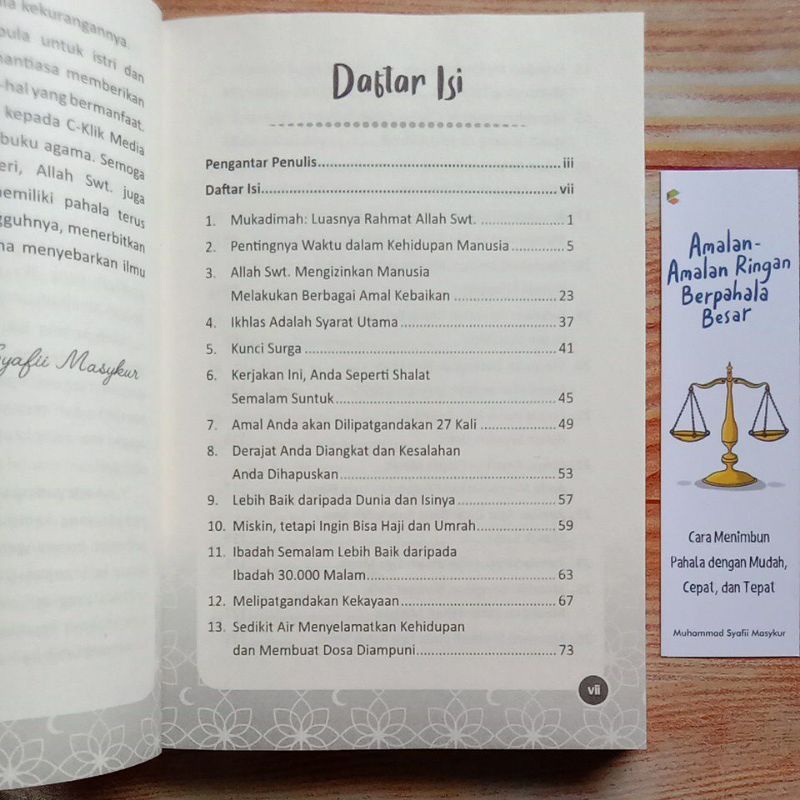 kekurangannya.
pula untuk istri dan
memberikan
-hal yang bermanfaat.
kepada C-Klik Media
buku agama. Semoga
Allah Swt. juga
memiliki pahala terus
menerbitkan
menyebarkan ilmu
Syafii Masykur
Daftar Isi
Pengantar Penulis.......... iii
Daftar Isi.......... vii
1. Mukadimah: Luasnya Rahmat Allah Swt. .......... 1
2. Pentingnya Waktu dalam Kehidupan Manusia .......... 5
3. Allah Swt. Mengizinkan Manusia
Melakukan Berbagai Amal Kebaikan .......... 23
4. Ikhlas Adalah Syarat Utama .......... 37
5. Kunci Surga .......... 41
6. Kerjakan Ini, Anda Seperti Shalat
Semalam Suntuk .......... 45
7. Amal Anda akan Dilipatgandakan 27 Kali .......... 49
8. Derajat Anda Diangkat dan Kesalahan
Anda Dihapuskan .......... 53
9. Lebih Baik daripada Dunia dan Isinya .......... 57
10. Miskin, tetapi Ingin Bisa Haji dan Umrah .......... 59
11. Ibadah Semalam Lebih Baik daripada
Ibadah 30.000 Malam .......... 63
12. Melipatgandakan Kekayaan .......... 67
13. Sedikit Air Menyelamatkan Kehidupan
dan Membuat Dosa Diampuni .......... 73
vii
Amalan-
Amalan Ringan
Berpahala
Besar
Cara Menimbun
Pahala dengan Mudah,
Cepat, dan Tepat
Muhammad Syafii Masykur